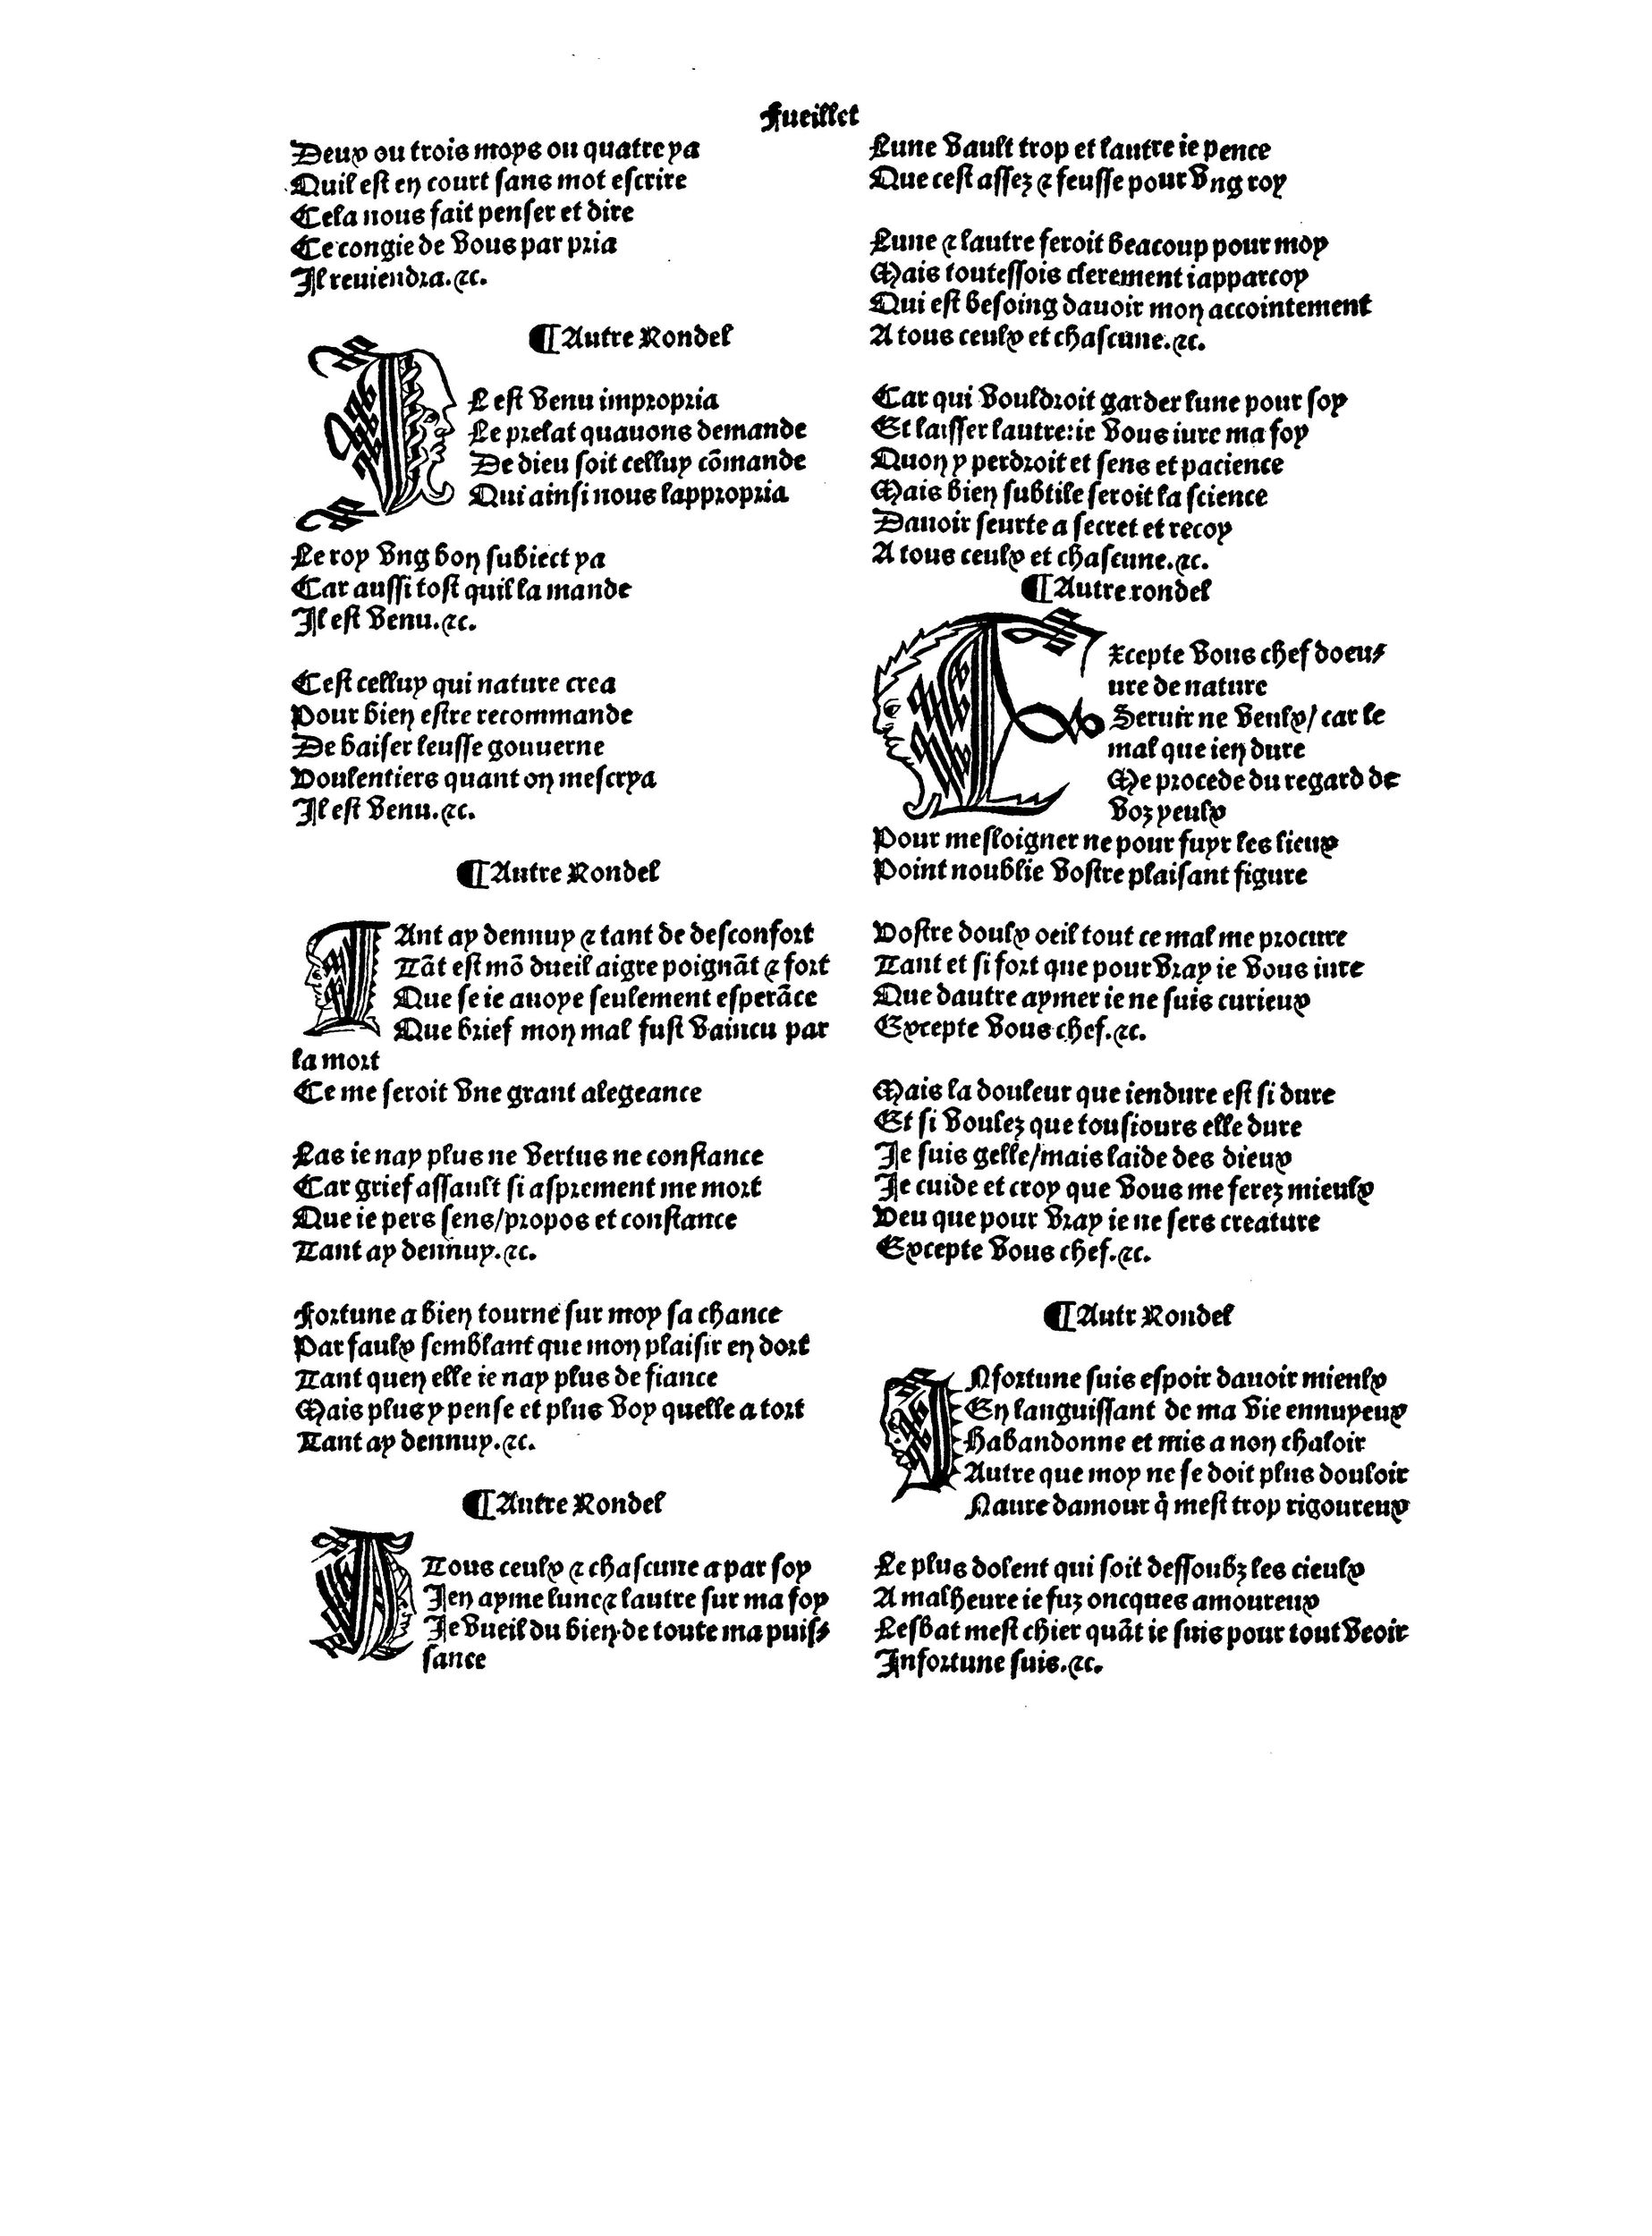 Fueillet
Deux ou trois moys ou quatre ya
Quil est en court sans mot escrire
Cela nous fait penser et dire
Ce congie de vous par pria
Il reuiendra.⁊c.
¶Autre Rondel
IL est venu impropria
Le prelat quauons demande
De dieu soit celluy cōmande
Qui ainsi nous lappropria
Le roy vng bon subiect ya
Car aussi tost quil la mande
Il est venu.⁊c.
Cest celluy qui nature crea
Pour bien estre recommande
De baiser leusse gouuerne
Voulentiers quant on mescrya
Il est venu.⁊c.
¶Autre Rondel
TAnt ay dennuy ⁊ tant de desconfort
Tāt est mō dueil aigre poignāt ⁊ fort
Que se ie auoye seulement esperāce
Que brief mon mal fust vaincu par
la mort
Ce me seroit vne grant alegeance
Las ie nay plus ne vertus ne constance
Car grief assault si asprement me mort
Que ie pers sens/propos et constance
Tant ay dennuy.⁊c.
Fortune a bien tourne sur moy sa chance
Par faulx semblant que mon plaisir en dort
Tant quen elle ie nay plus de fiance
Mais plus y pense et plus voy quelle a tort
Tant ay dennuy.⁊c.
¶Autre Rondel
A Tous ceulx ⁊ chascune a par soy
Jen ayme lune⁊ lautre sur ma foy
Je vueil du bien de toute ma puis⸗
sance
Lune vault trop et lautre ie pence
Que cest assez ⁊ feusse pour vng roy
Lune ⁊ lautre feroit beacoup pour moy
Mais touteffois clerement iapparcoy
Qui est besoing dauoir mon accointement
A tous ceulx et chascune.⁊c.
Car qui vouldroit garder lune pour soy
Et laisser lautre:ie vous iure ma foy
Quon y perdroit et sens et pacience
Mais bien subtile seroit la science
Dauoir seurte a secret et recoy
A tous ceulx et chascune.⁊c.
¶Autre rondel
Excepte vous chef doeu⸗
ure de nature
Seruir ne veulx/ car le
mal que ien dure
Me procede du regard de
voz yeulx
Pour mesloigner ne pour fuyr les lieux
Point noublie vostre plaisant figure
Vostre doulx oeil tout ce mal me procure
Tant et si fort que pour vray ie vous iure
Que dautre aymer ie ne suis curieux
Excepte vous chef.⁊c.
Mais la douleur que iendure est si dure
Et si voulez que tousiours elle dure
Je suis gelle/mais laide des dieux
Je cuide et croy que vous me ferez mieulx
Veu que pour vray ie ne sers creature
Excepte vous chef.⁊c.
¶Autr Rondel
INfortune suis espoir dauoir mieulx
En languissant de ma vie ennuyeux
Habandonne et mis a non chaloir
Autre que moy ne se doit plus douloir
Naure damour q̄ mest trop rigoureux
Le plus dolent qui soit dessoubz les cieulx
A malheure ie fuz oncques amoureux
Lesbat mest chier quāt ie suis pour tout veoir
Infortune suis.⁊c.